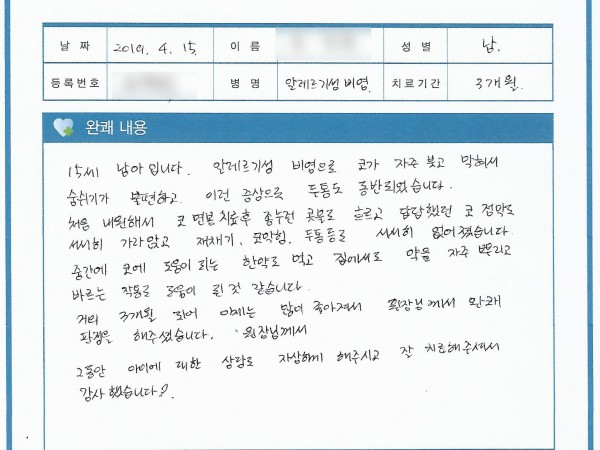 날 짜 2019. 4. 15. 이 름 성 별 남.
등록번호 병 명 알레르기성 비염. 치료기간 3개월.
완쾌 내용
15세 남아 입니다. 알레르기성 비염으로 코가 자주 붓고 막혀서
숨쉬기가 불편하고. 이런 증상으로 두통도 동반되었습니다.
처음 내원해서 코 면봉 치료후 콧물이 흐르고 답답했던 코 점막도
서서히 가라앉고 재채기, 코막힘, 두통등도 서서히 없어졌습니다.
중간에 코에 도움이 되는 한약도 먹고 집에서도 약을 자주 뿌리고
바르는 작용도 도움이 된 것 같습니다.
거의 3개월 되어 이제는 많이 좋아져서 원장님께서 완쾌
판정을 해주셨습니다. 원장님께서
그동안 아이에 대한 상담도 자상하게 해주시고 잘 치료해주셔서
감사했습니다.